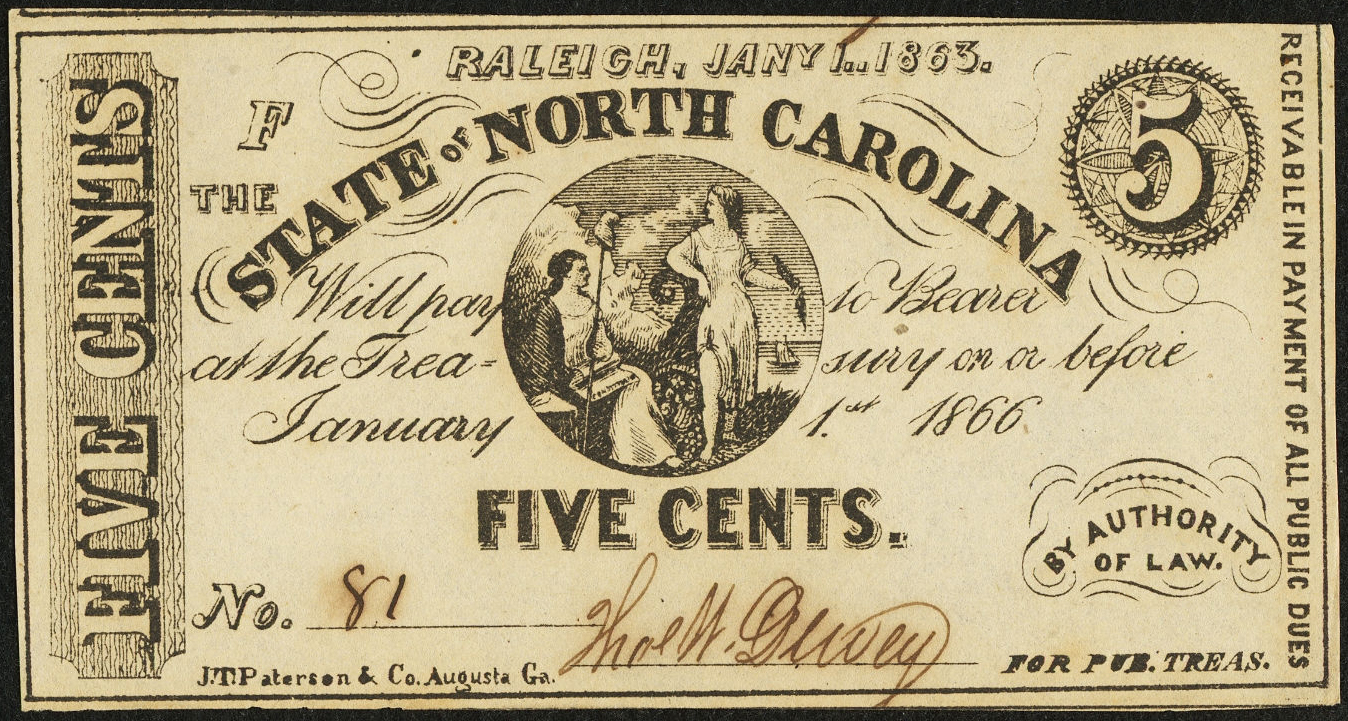 RALEIGH, JANY 1..1863.
F
5
THE
STATE OF NORTH CAROLINA
Will pay to Bearer
at the Trea= sury on or before
January 1.st 1866
FIVE CENTS.
BY AUTHORITY
OF LAW.
No. 81
Thos W. Dewey
FOR PUB. TREAS.
J.T. Paterson & Co. Augusta Ga.
FIVE CENTS
RECEIVABLE IN PAYMENT OF ALL PUBLIC DUES